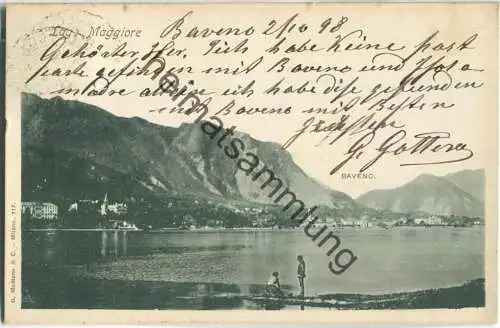 Lago Maggiore
Baveno 2/10 98
Gehörter Herr, Teile ich habe Keine post
parte gefunden mit Baveno und Isola
madre aber ich habe dise gefunden
mit Baveno mit Besten
Grüssen
G. Gottera
BAVENO.
G. Modiano & C. - Milano. 117.
www.heimatsammlung.de